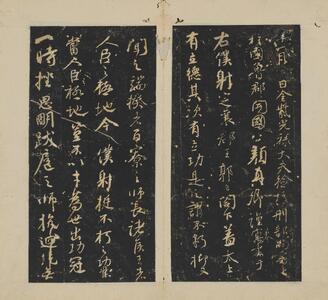 十一月日金紫光祿大夫檢校刑部尚書上
柱國魯郡開國公顏真卿謹奉書于
右僕射定襄郡王郭公閣下蓋太上
有立德其次有立功是之謂不朽抑又
聞之端揆者百寮之師長諸侯王者
人臣之極地今僕射挺不朽之功業
當人臣極地豈不以才為世出功冠
一時挫思明跋扈之師抗迴紇無